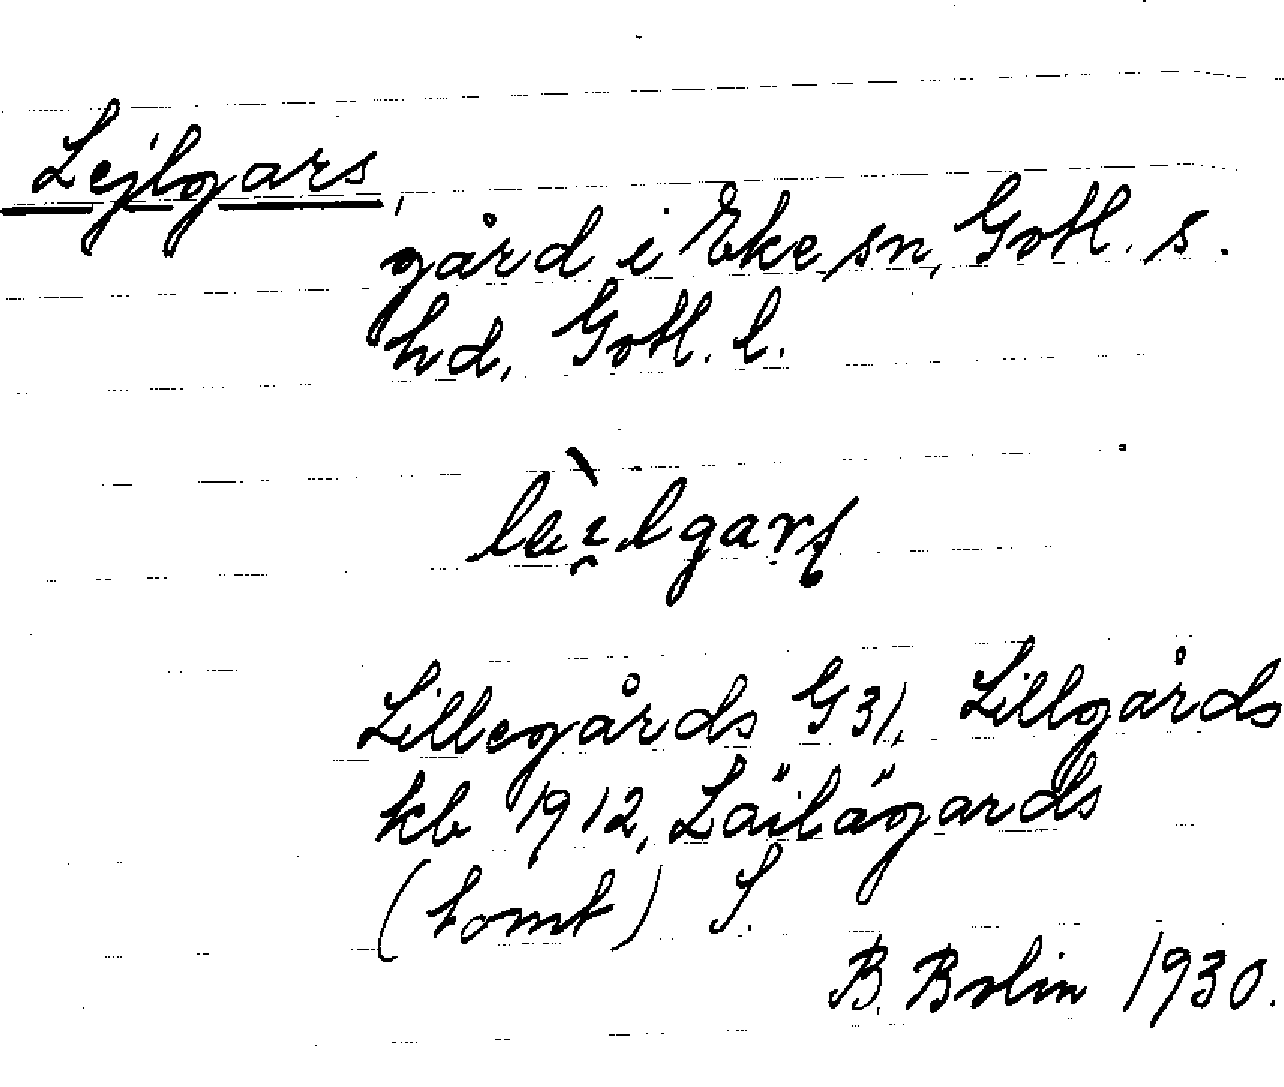 Lejlgars
gård i Eke sn, Gotl. s.
hd, Gotl. l.
lèi̯lgarʂ
Lillegårds G31, Lillgårds
kb 1912, Läilägards
(tomt) S.
B. Bolin 1930.